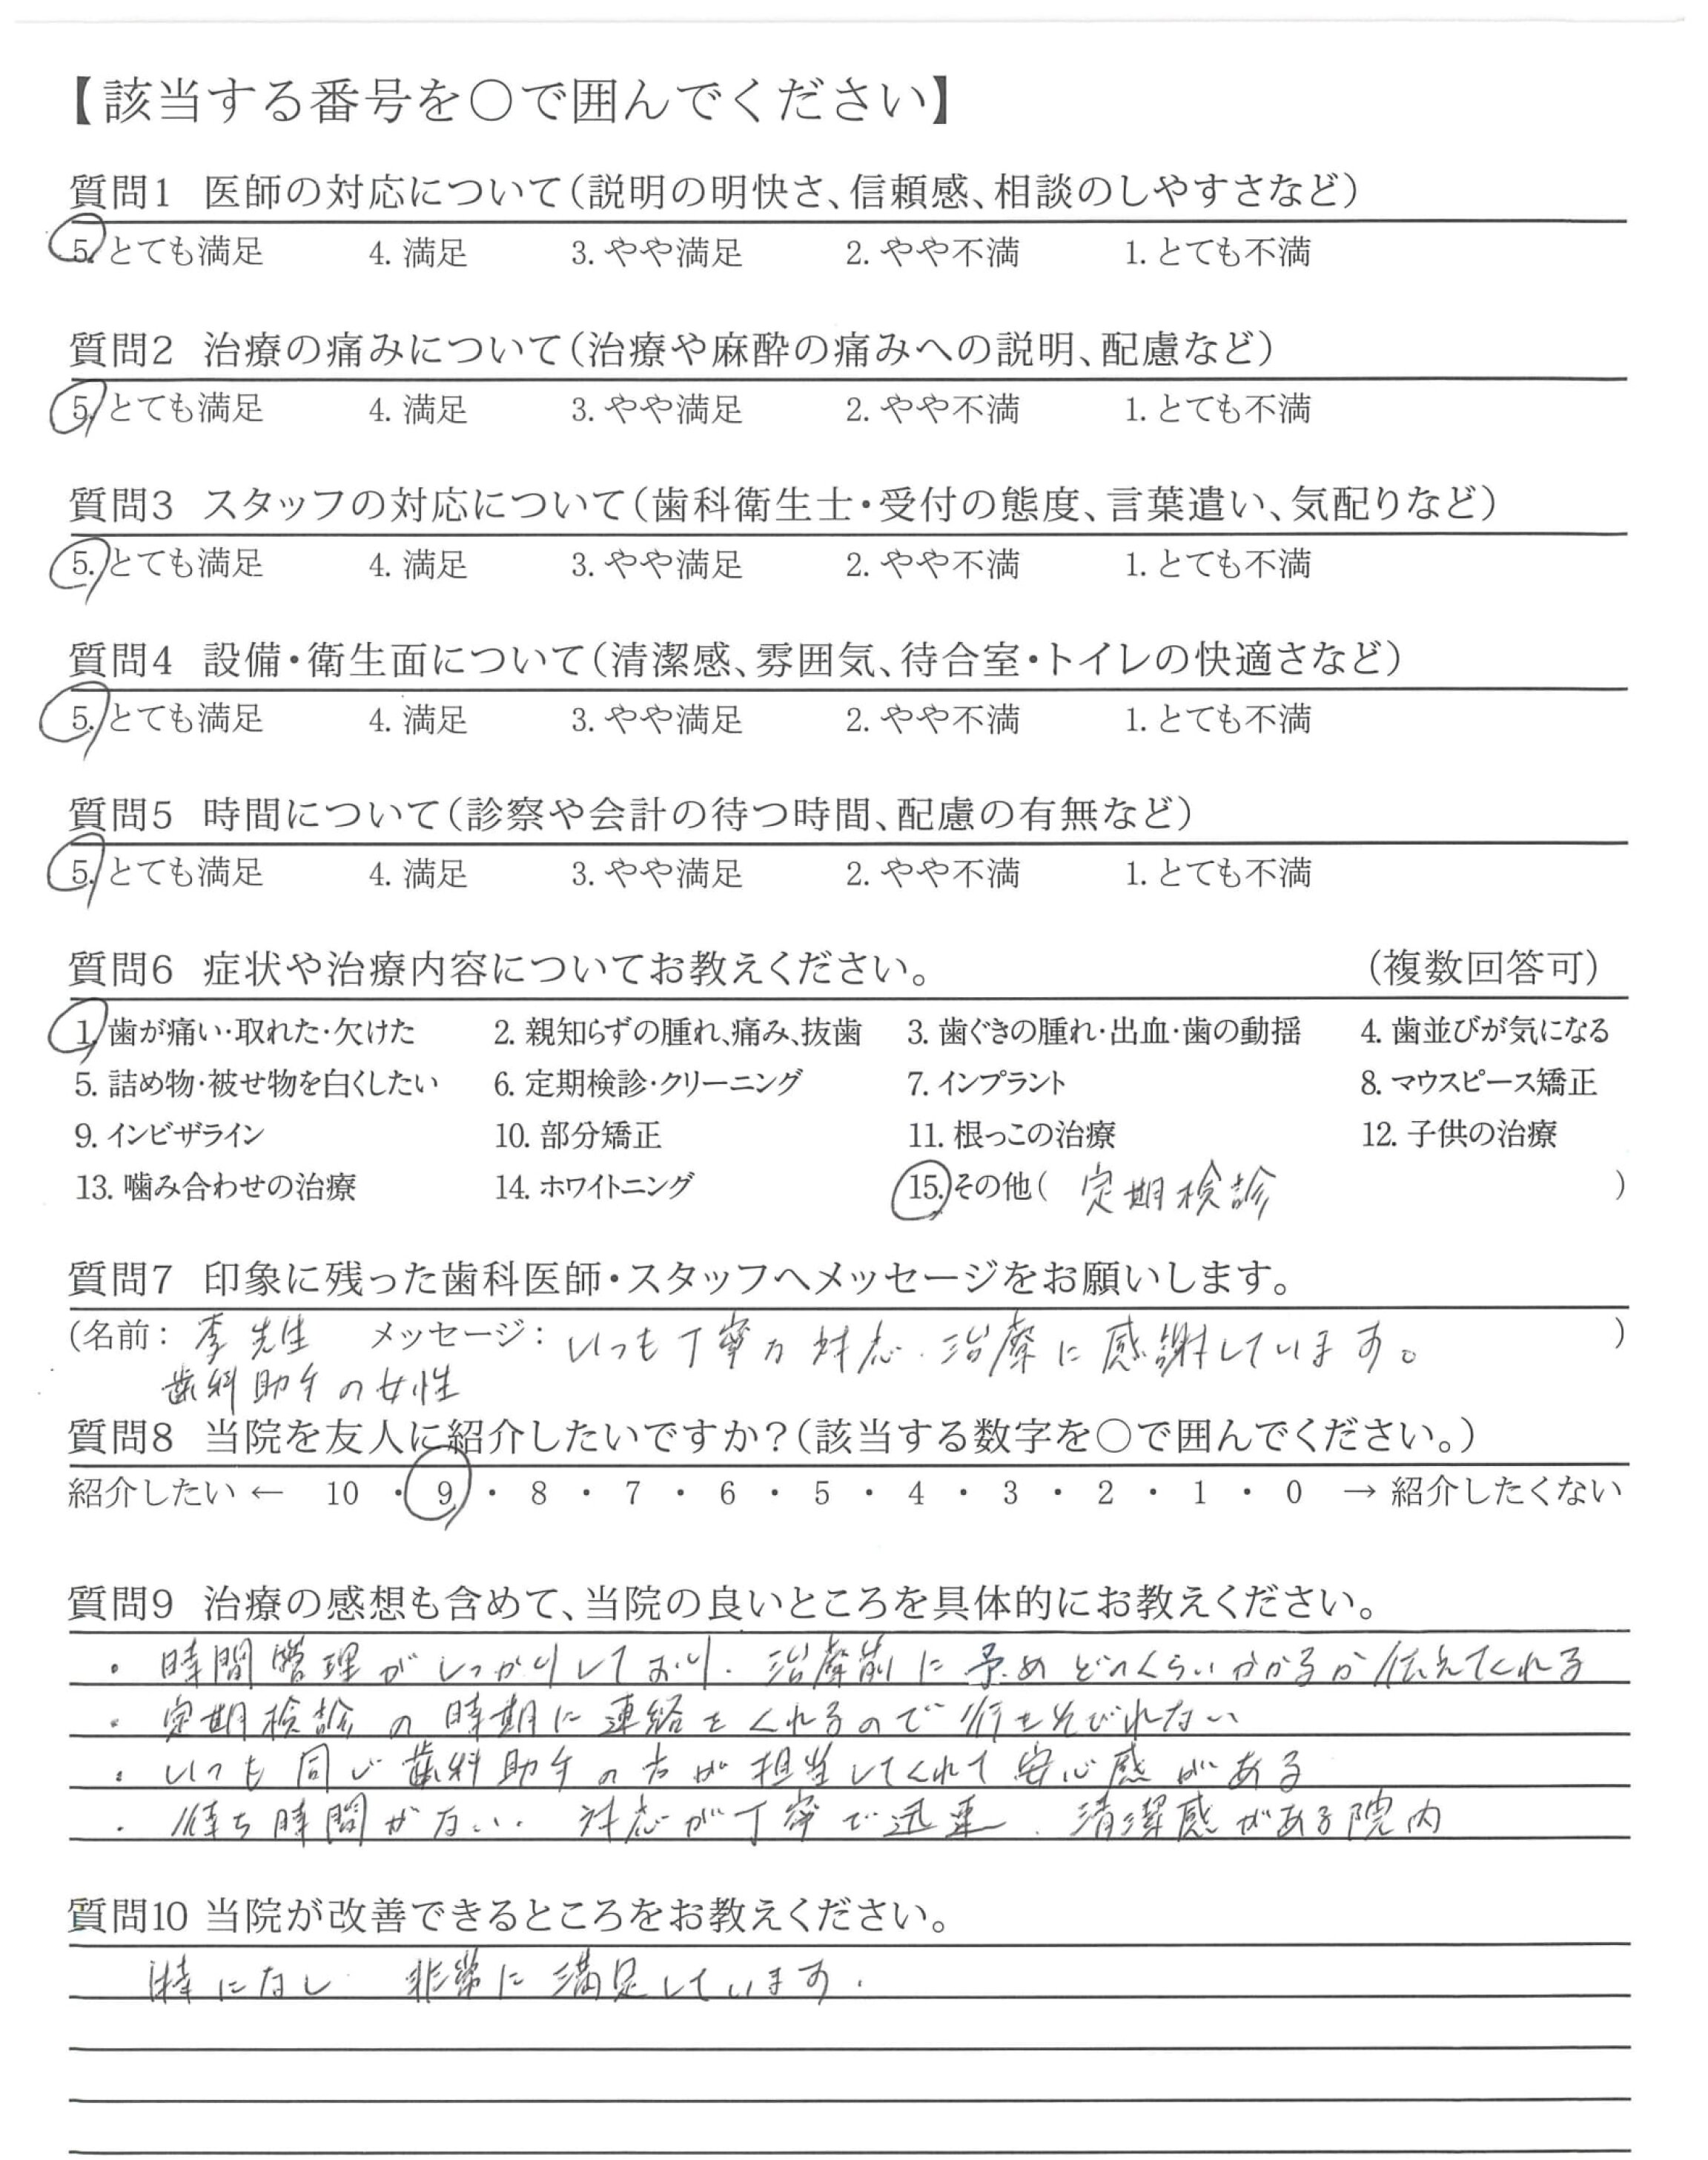 【該当する番号を○で囲んでください】
質問1 医師の対応について(説明の明快さ、信頼感、相談のしやすさなど)
5. とても満足 4. 満足 3. やや満足 2. やや不満 1. とても不満
質問2 治療の痛みについて(治療や麻酔の痛みへの説明、配慮など)
5. とても満足 4. 満足 3. やや満足 2. やや不満 1. とても不満
質問3 スタッフの対応について(歯科衛生士・受付の態度、言葉遣い、気配りなど)
5. とても満足 4. 満足 3. やや満足 2. やや不満 1. とても不満
質問4 設備・衛生面について(清潔感、雰囲気、待合室・トイレの快適さなど)
5. とても満足 4. 満足 3. やや満足 2. やや不満 1. とても不満
質問5 時間について(診察や会計の待つ時間、配慮の有無など)
5. とても満足 4. 満足 3. やや満足 2. やや不満 1. とても不満
質問6 症状や治療内容についてお教えください。 (複数回答可)
1. 歯が痛い・取れた・欠けた 2. 親知らずの腫れ、痛み、抜歯 3. 歯ぐきの腫れ・出血・歯の動揺 4. 歯並びが気になる
5. 詰め物・被せ物を白くしたい 6. 定期検診・クリーニング 7. インプラント 8. マウスピース矯正
9. インビザライン 10. 部分矯正 11. 根っこの治療 12. 子供の治療
13. 噛み合わせの治療 14. ホワイトニング 15. その他( 定期検診 )
質問7 印象に残った歯科医師・スタッフへメッセージをお願いします。
(名前: 李先生 メッセージ: いつも丁寧な対応・治療に感謝しています。 )
歯科助手の女性
質問8 当院を友人に紹介したいですか?(該当する数字を○で囲んでください。)
紹介したい ← 10 ・ 9 ・ 8 ・ 7 ・ 6 ・ 5 ・ 4 ・ 3 ・ 2 ・ 1 ・ 0 → 紹介したくない
質問9 治療の感想も含めて、当院の良いところを具体的にお教えください。
・時間管理がしっかりしており、治療前に予めどのくらいかかるか伝えてくれる
・定期検診の時期に連絡をくれるので行きそびれない
・いつも同じ歯科助手の方が担当してくれて安心感がある
・待ち時間がない、対応が丁寧で迅速、清潔感がある院内
質問10 当院が改善できるところをお教えください。
特になし 非常に満足しています.